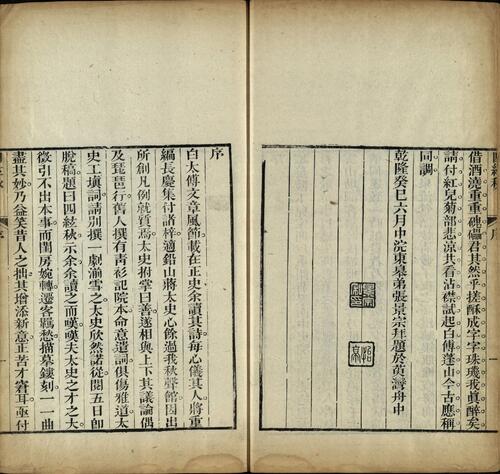 借酒澆重重磈礧君其然乎搓酥成字字珠璣哉眞醉矣
請付紅兒菊部悲涼共看沾襟試起白傅蓬山今古應稱
同調
乾隆癸巳六月中浣東皋弟張景宗拜題於黄灣舟中
序
白太傅文章風節載在正史余讀其詩每心儀其人將重
編長慶集付諸梓適鉛山蔣太史心餘過我秋聲館因出
所創凡例就質焉太史拊掌曰善遂相與上下其議論偶
及琵琶行舊人撰有靑衫記院本命意遣詞俱傷雅道太
史工塡詞請別撰一劇湔雪之太史欣然諾從開五日卽
脫稿題曰四絃秋示余余讀之而嘆嘆夫太史之才之大
徵引不出本事而閨房婉轉遷客羈愁描摹鏤刻一一曲
盡其妙乃益笑昔人之拙其增添新意正苦才窘耳亟付